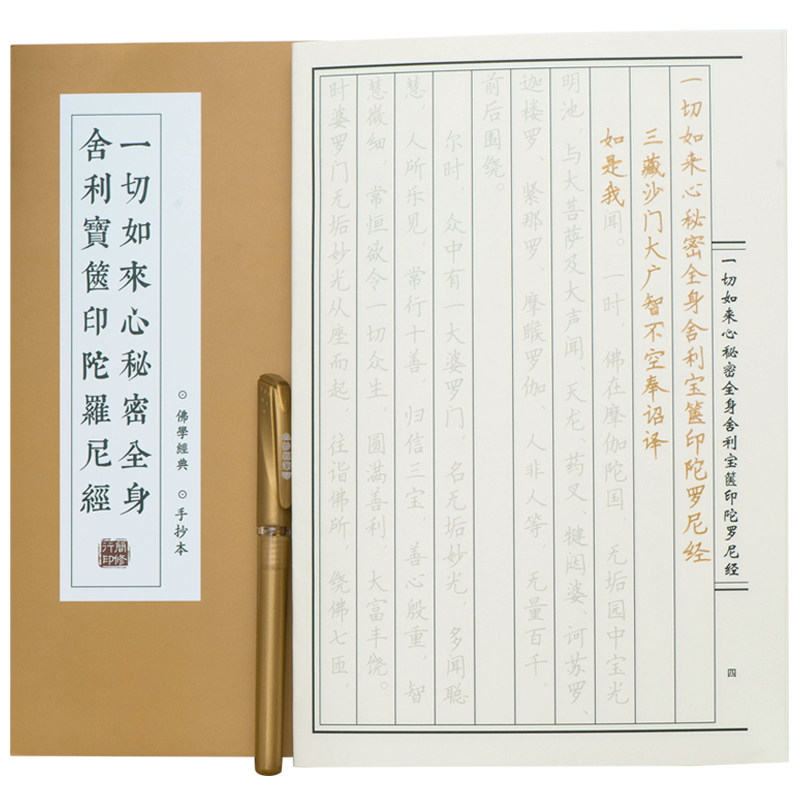 一切如來心秘密全身
舍利寶篋印陀羅尼經
⊙ 佛學經典 ⊙ 手抄本
一切如来心秘密全身舍利宝箧印陀罗尼经
四
一切如来心秘密全身舍利宝箧印陀罗尼经
三藏沙门大广智不空奉诏译
如是我闻。一时，佛在摩伽陀国，无垢园中宝光
明池，与大菩萨及大声闻、天龙、药叉、犍闼婆、诃苏罗、
迦楼罗、紧那罗、摩睺罗伽、人非人等，无量百千，
前后围绕。
尔时，众中有一大婆罗门，名无垢妙光，多闻聪
慧，人所乐见，常行十善，归信三宝，善心殷重，智
慧微细，常恒欲令一切众生，圆满善利，大富丰饶。
时婆罗门无垢妙光从座而起，往诣佛所，绕佛七匝，